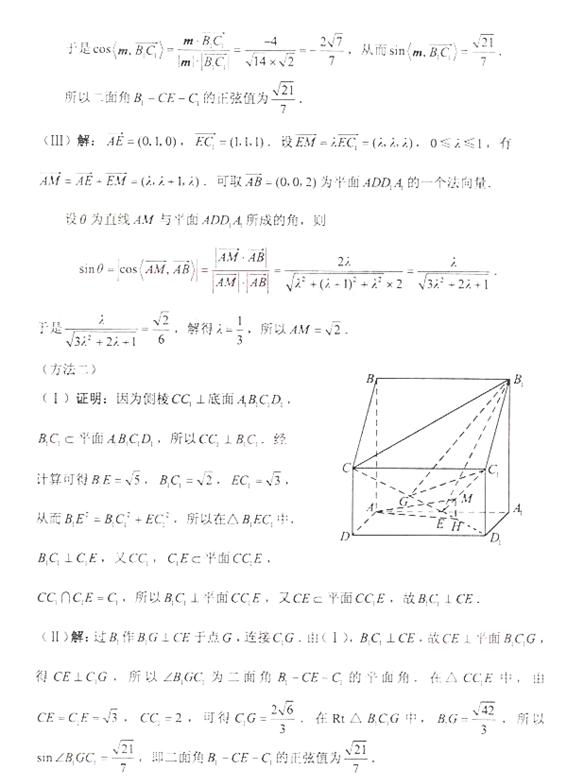 于是cos⟨m, B₁C₁⟩ = m·B₁C₁ / |m|·|B₁C₁| = −4 / (√14×√2) = −2√7/7，从而sin⟨m, B₁C₁⟩ = √21/7．
所以二面角B₁−CE−C₁的正弦值为√21/7．
(III) 解：AE = (0,1,0)，EC₁ = (1,1,1)．设EM = λEC₁ = (λ,λ,λ)，0≤λ≤1，有
AM = AE + EM = (λ,λ+1,λ)．可取AB = (0,0,2)为平面ADD₁A₁的一个法向量．
设θ为直线AM与平面ADD₁A₁所成的角，则
sinθ = |cos⟨AM, AB⟩| = |AM·AB| / |AM|·|AB| = 2λ / (√(λ²+(λ+1)²+λ²)×2) = λ / √(3λ²+2λ+1)．
于是 λ/√(3λ²+2λ+1) = √2/6，解得λ=1/3，所以AM=√2．
（方法二）
(Ⅰ) 证明：因为侧棱CC₁⊥底面A₁B₁C₁D₁，
B₁C₁⊂平面A₁B₁C₁D₁，所以CC₁⊥B₁C₁．经
计算可得B₁E=√5，B₁C₁=√2，EC₁=√3，
从而B₁E²=B₁C₁²+EC₁²，所以在△B₁EC₁中，
B₁C₁⊥C₁E，又CC₁，C₁E⊂平面CC₁E，
CC₁∩C₁E=C₁，所以B₁C₁⊥平面CC₁E，又CE⊂平面CC₁E，故B₁C₁⊥CE．
(Ⅱ) 解：过B₁作B₁G⊥CE于点G，连接C₁G．由(Ⅰ)，B₁C₁⊥CE，故CE⊥平面B₁C₁G，
得CE⊥C₁G，所以∠B₁GC₁为二面角B₁−CE−C₁的平面角．在△CC₁E中，由
CE=C₁E=√3，CC₁=2，可得C₁G=2√6/3．在Rt△B₁C₁G中，B₁G=√42/3，所以
sin∠B₁GC₁=√21/7，即二面角B₁−CE−C₁的正弦值为√21/7．
B B₁
C C₁
G M
A A₁
E H
D D₁